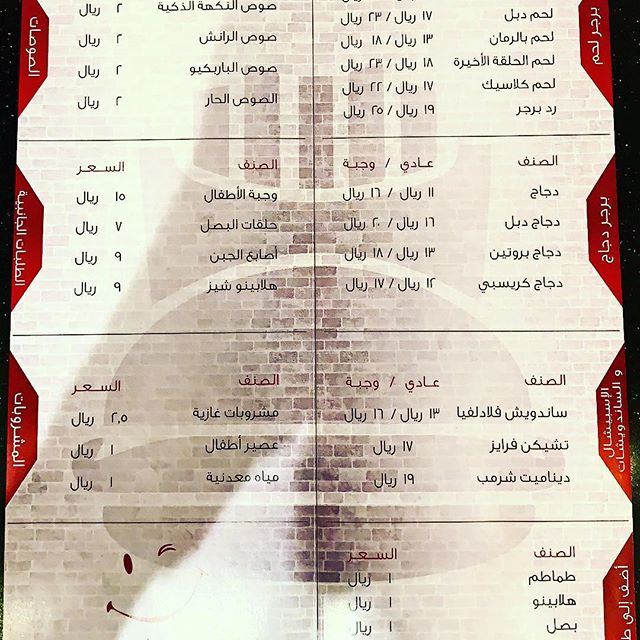 برجر لحم
لحم دبل ١٧ ريال / ٢٣ ريال
لحم بالرمان ١٣ ريال / ١٨ ريال
لحم الحلقة الأخيرة ١٨ ريال / ٢٣ ريال
لحم كلاسيك ١٧ ريال / ٢٢ ريال
رد برجر ١٩ ريال / ٢٥ ريال
الصوصات
صوص النكهة الذكية ٢ ريال
صوص الرانش ٢ ريال
صوص الباربكيو ٢ ريال
الصوص الحار ٢ ريال
برجر دجاج
الصنف عادي / وجبة
دجاج ١١ ريال / ١٦ ريال
دجاج دبل ١٦ ريال / ٢٠ ريال
دجاج بروتين ١٣ ريال / ١٨ ريال
دجاج كريسبي ١٢ ريال / ١٧ ريال
الطلبات الجانبية
الصنف السعر
وجبة الأطفال ١٥ ريال
حلقات البصل ٧ ريال
أصابع الجبن ٩ ريال
هلابينو شيز ٩ ريال
الإسبيشال
و الساندويشات
الصنف عادي / وجبة
ساندويش فلادلفيا ١٣ ريال / ١٦ ريال
تشيكن فرايز ١٧ ريال
ديناميت شرمب ١٩ ريال
المشروبات
الصنف السعر
مشروبات غازية ٢,٥ ريال
عصير أطفال ١ ريال
مياه معدنية ١ ريال
أضف إلى
الصنف السعر
طماطم ١ ريال
هلابينو ١ ريال
بصل ١ ريال